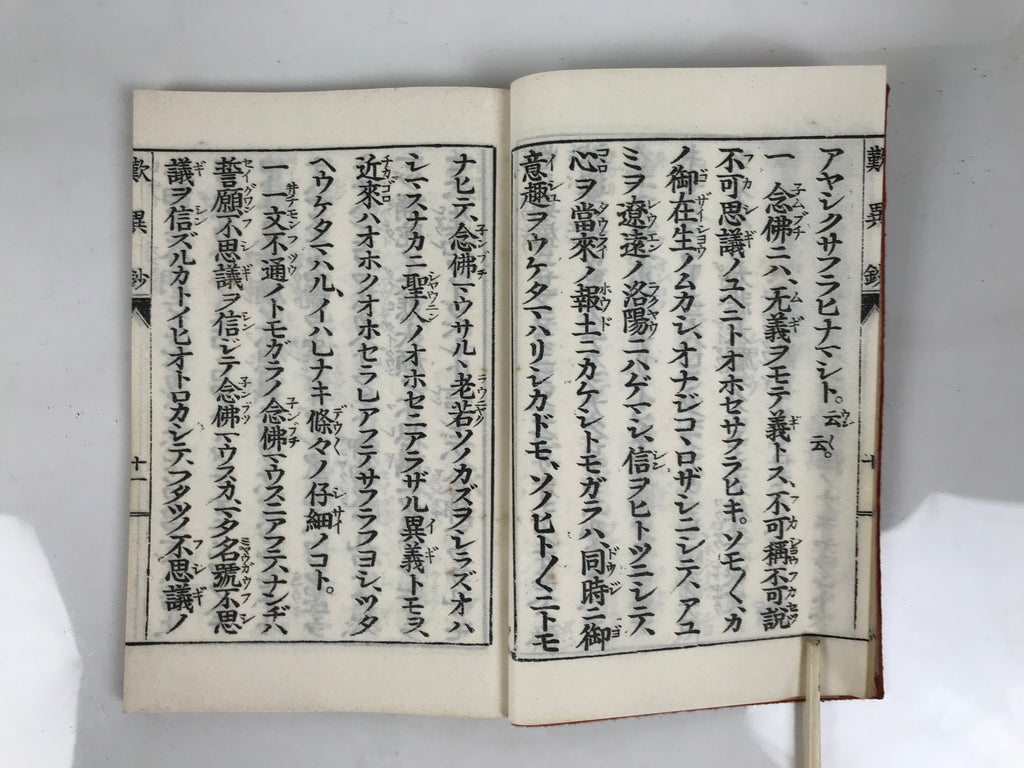 歎異鈔
アヤシクサフラヒナマシト。云云。
一 念佛ニハ、无義ヲモテ義トス、不可稱不可說
不可思議ノユヘニトオホセサフラヒキ。ソモ〱、カ
ノ御在生ノムカシ、オナジコヽロザシニシテ、アユ
ミヲ遼遠ノ洛陽ニハゲマシ、信ヲヒトツニシテ、
心ヲ當來ノ報土ニカケシトモガラハ、同時ニ御
意趣ヲウケタマハリシカドモ、ソノヒト〲ニトモ
ナヒテ、念佛マウサルヽ老若ソノカズヲシラズオハ
シマスナカニ聖人ノオホセニアラザル異義トモヲ、
近來ハオホクオホセラレアフテサフラフヨシ、ツタ
ヘウケタマハル、イハレナキ條々ノ仔細ノコト。
一 一文不通ノトモガラノ念佛マウスニアフテ、ナンヂハ
誓願不思議ヲ信ジテ念佛マウスカ、マタ名號不思
議ヲ信ズルカトイヒオトロカシテ、フタツノ不思議ノ
歎異鈔
十一